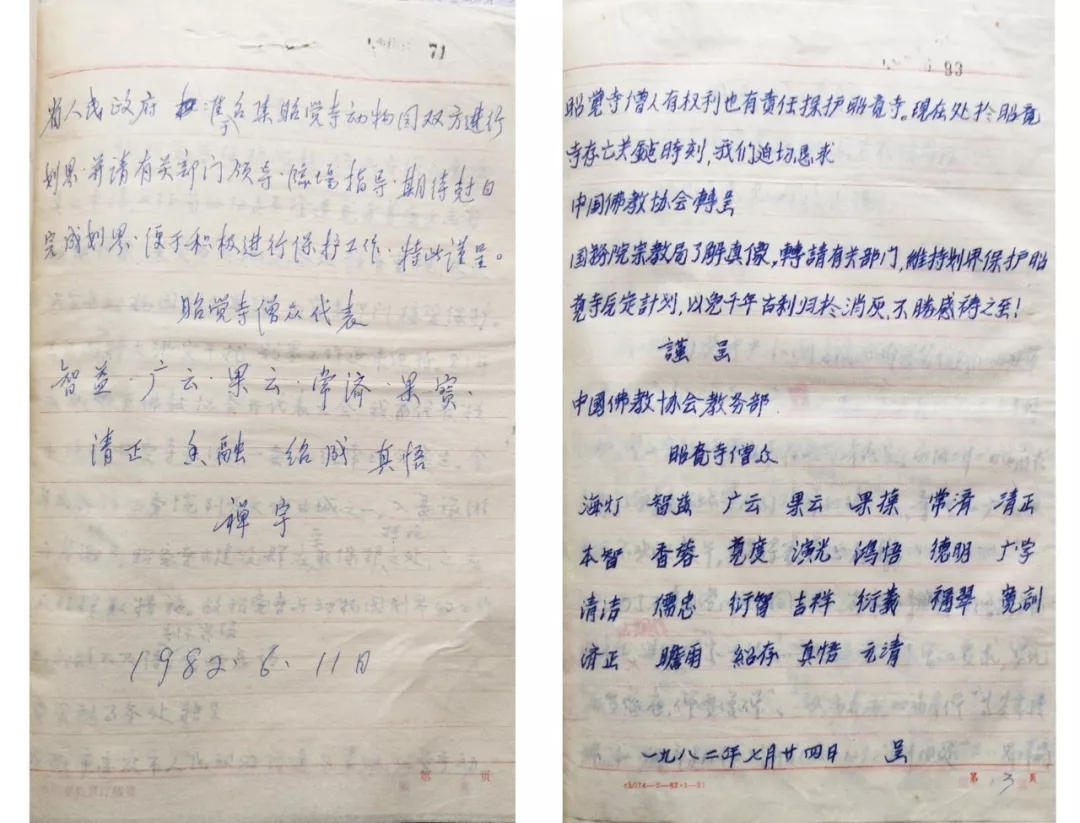 71
省人民政府 准予召集昭觉寺动物园双方进行
划界·并請有关部门领导·临場指导·期待尅日
完成划界·便于积极进行保护工作·特此谨呈。
昭觉寺僧众代表
智益·广云·果云·常济·果寳·
清正 融 绍成 真悟
禅宇
1982.6.11日
第 页
93
昭覺寺僧人有权利也有责任探护昭覺寺。现在处於昭覺
寺存亡关鍵時刻,我们迫切恳求
中国佛教协会轉呈
国務院宗教局了解真像,轉請有关部门,維持划界保护昭
覺寺原定計划,以免千年古刹归於消灰,不勝感祷之至!
謹 呈
中国佛教协会教务部
昭覺寺僧众
海灯 智益 广云 果云 果操 常濟 清正
本智 香蓉 寬度 演光 鴻悟 德明 广学
清洁 儒忠 衍智 吉祥 衍義 福翠 寬訓
济正 瞻雨 紹存 真悟 玄清
一九八二年七月廿四日 呈
第 3 页